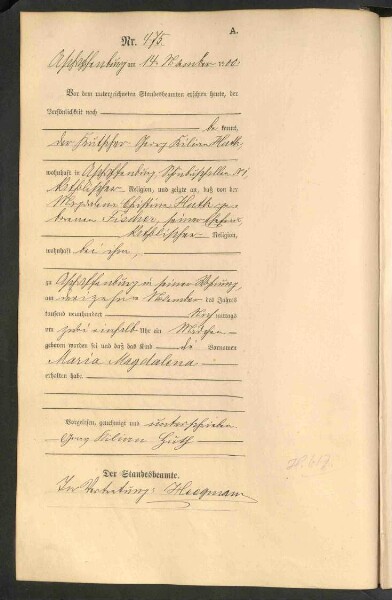 A.
Nr. 475.
Aschaffenburg am 14. November 1900
Vor dem unterzeichneten Standesbeamten erschien heute, der
Persönlichkeit nach
be kannt,
der Kutscher Georg Kilian Huth,
wohnhaft in Aschaffenburg,
katholischer Religion, und zeigte an, daß von der
Magdalena Christina Huth, ge-
borenen Fischer, seiner Ehefrau,
katholischer Religion,
wohnhaft bei ihm,
zu Aschaffenburg in seiner Wohnung,
am November des Jahres
tausend neunhundert Nach mittags
um halb Uhr ein Mädchen
geboren worden sei und daß das Kind die Vornamen
Maria Magdalena
erhalten habe.
Vorgelesen, genehmigt und unterschrieben
Georg Kilian Huth
Der Standesbeamte.
In Vertretung: